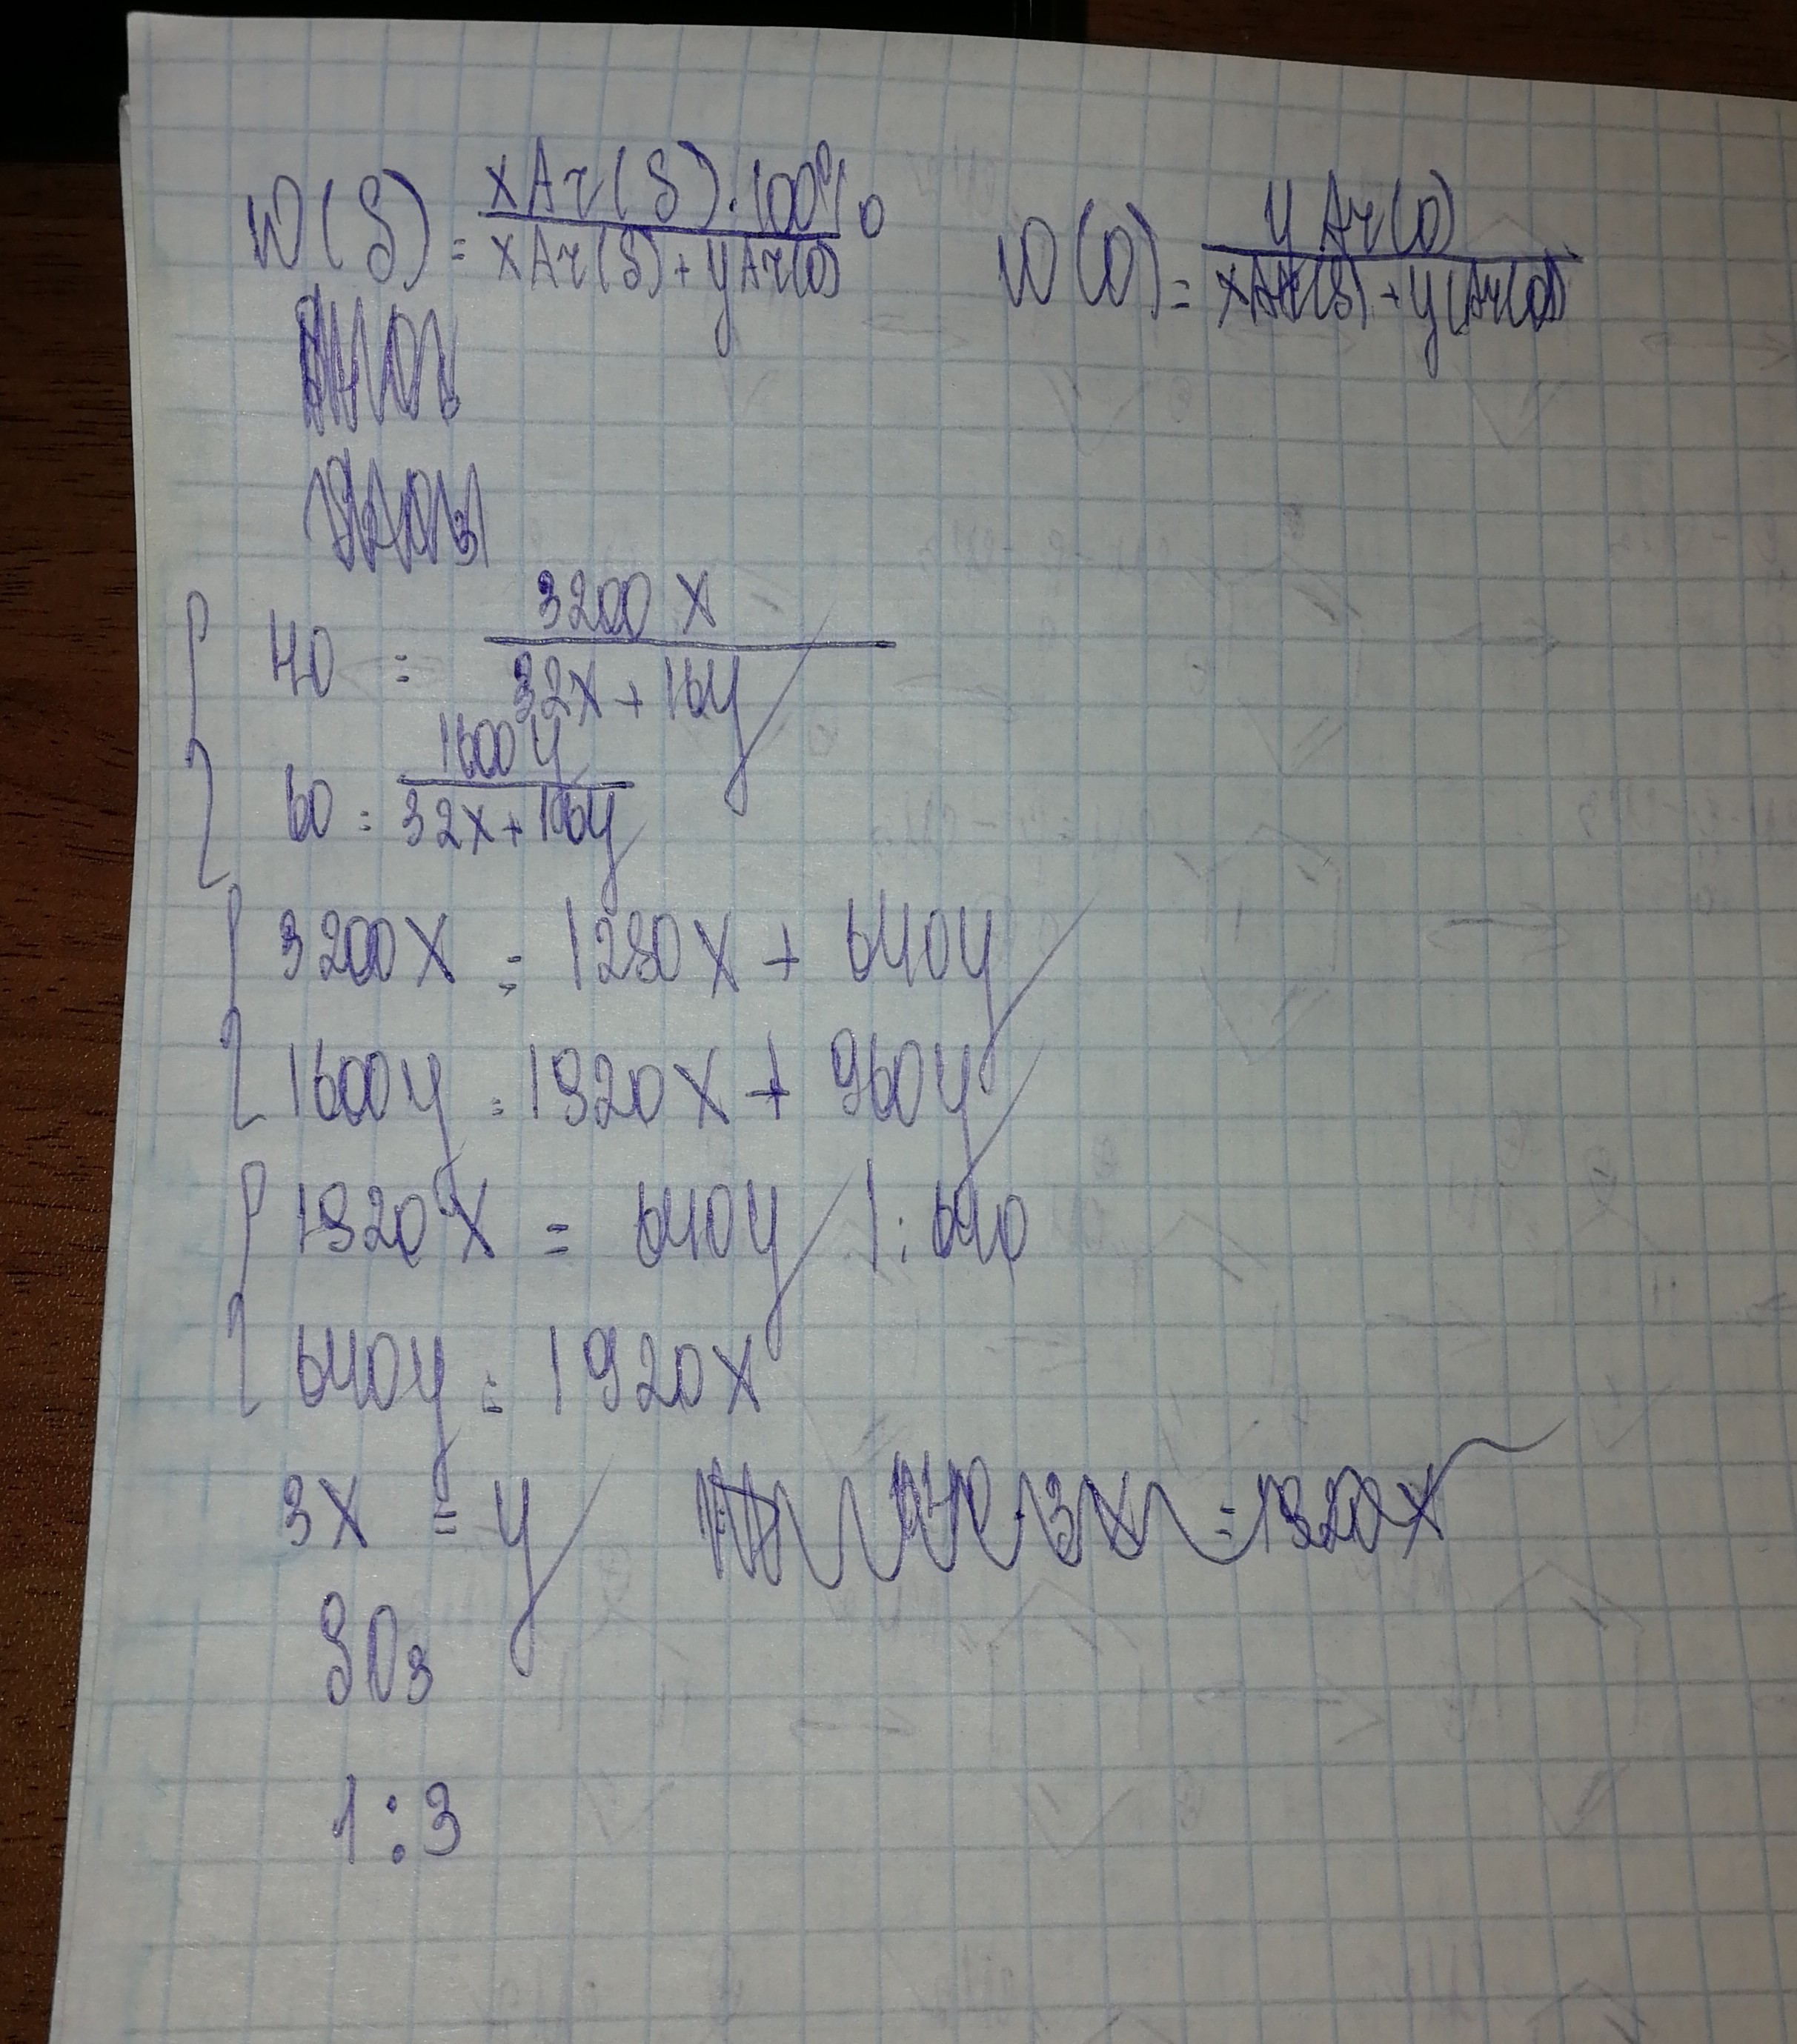 W(S) = xAr(S)·100% / xAr(S)+yAr(O) W(O) = yAr(O) / xAr(S)+y(Ar(O)
40 = 3200x / 32x+16y
60 = 1600y / 32x+16y
3200x = 1280x + 640y
1600y = 1920x + 960y
1920x = 640y |:640
640y = 1920x
3x = y = 1920x
SO₃
1:3